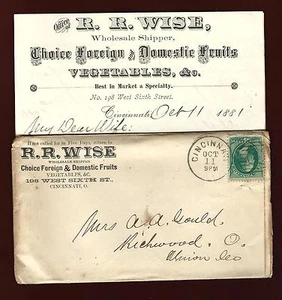 R. R. WISE,
Wholesale Shipper,
Choice Foreign & Domestic Fruits
VEGETABLES, &c.
Best in Market a Specialty.
No. 198 West Sixth Street.
Cincinnati, Oct 11 1881
My Dear Wife:
If not called for in Five Days, return to
R.R. WISE
WHOLESALE SHIPPER
Choice Foreign & Domestic Fruits
VEGETABLES, &c.
198 WEST SIXTH ST.
CINCINNATI, O.
CINCINN
OCT
11
9PM
Mrs A. A. Gould,
Richwood. O.
Union Co